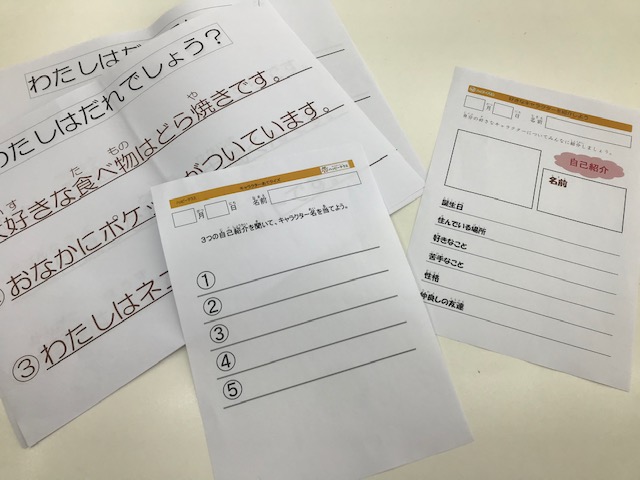 わたしはだ
わたしはだれでしょう？
好きな食べ物はどら焼きです。
おなかにポケッ
がついています。
③わたしはネコ
月 日 名前
3つの自己紹介を聞いて、キャラクター名を当てよう。
①
②
③
④
⑤
月 日 名前
自己紹介
名前
誕生日
住んでいる場所
好きなこと
苦手なこと
性格
仲良しの友達